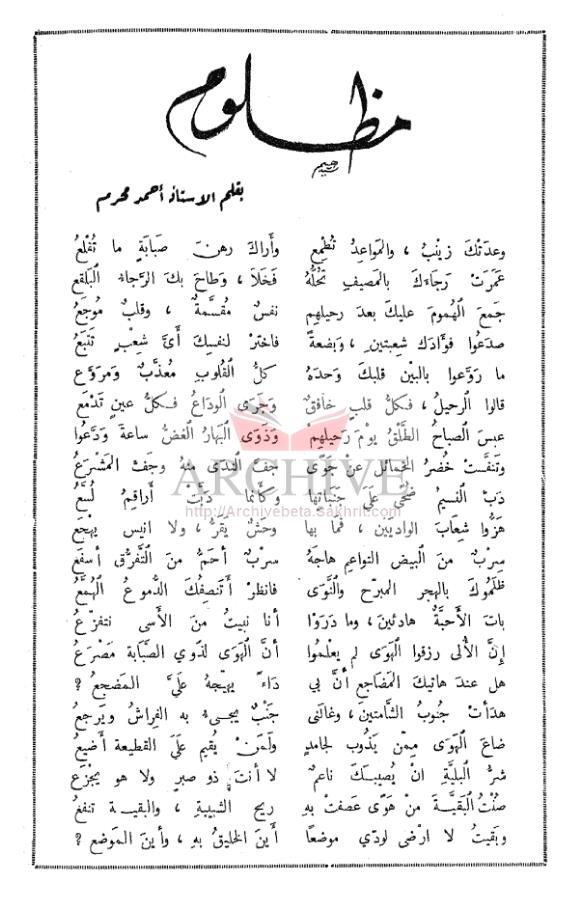 مظلوم
بقلم الاستاذ أحمد محرم
وعدتْكَ زينبُ، والمواعدُ تُطْمِعُ وأراكَ رهنَ صَبابَةٍ ما تُقْلِعُ
عَمَرَتْ رجاءَكَ بالمصيفِ تَحُلُّهُ فَخَلَا، وطاحَ بكَ الرَّجاءُ البَلْقَعُ
جمعَ الهُمومَ عليكَ بعدَ رحيلِهم نفسٌ مُقسَّمةٌ، وقلبٌ مُوجَعُ
صدعُوا فؤادَك شعبتينِ، وبَضعةً فاخترْ لنفسِكَ أيَّ شِعْبٍ تَتْبَعُ
ما رَوَّعوا بالبَيْنِ قلبَكَ وحدَهُ كلُّ القُلوبِ مُعذَّبٌ ومُرَوَّعُ
قالوا الرحيلُ، فكلُّ قلبٍ خافقٌ وجَرَى الوداعُ فكلُّ عينٍ تَدْمَعُ
عبسَ الصباحُ الطَّلْقُ يومَ رَحيلهِمْ وذَوَى البَهارُ الغضُّ ساعةَ ودَّعُوا
وتنفَّستْ خُضرُ الخمائلِ عنْ جَوًى جفَّ الندَى منهُ وجفَّ المَشْرَعُ
دَبَّ النسيمُ ضُحًى عَلَى جَنَباتِها وكأنما دَبَّتْ أراقِمُ لُسَّعُ
هَزُّوا شِعابَ الواديَينِ، فما بها وحشٌ يَقَرُّ، ولا انيس يهْجَعُ
سِربٌ منَ البيضِ النواعمِ هاجَهُ سربٌ أحَمُّ منَ التَّفرُّقِ أسفعُ
ظلمُوكَ بالهجرِ المبرِّحِ والنَّوَى فانظرْ أتَنصِفُكَ الدُّموعُ الهُمَّعُ
باتَ الأحبَّةُ هادئينَ، وما دَرَوْا أنا نبيتُ منَ الأسى نتفزَّعُ
إنَّ الأُلَى رزقوا الهَوَى لم يعلمُوا أنَّ الهَوَى لذوي الصَّبابة مَصْرَعُ
هل عندَ هاتيكَ المضاجعِ أنَّ بي داءً يهيِّجهُ عَلَيَّ المَضجعُ؟
هدأتْ جنُوبُ الشَّامتينَ، وغالنى جَنْبٌ يجىءُ به الفِراشُ ويَرجعُ
ضاعَ الهَوَى ممّن يَذُوب لجامدٍ ولَمَنْ يُقيم عَلَى القطيعة أضيعُ
شرُّ البليَّةِ انْ يُصيبَكَ ناعمٌ لا أنتَ ذو صبرٍ ولا هو يجْزَعُ
صُنْتُ البَقيَّةَ مِنْ هَوًى عَصفتْ بهِ ريح الشبيبةِ، والبقيةُ تنفعُ
وبقيتُ لا ارْضى لودّي موضعًا أينَ الخليقُ بهِ، وأينَ المَوضع؟
ARCHIVE
http://Archivebeta.Sakhrit.com